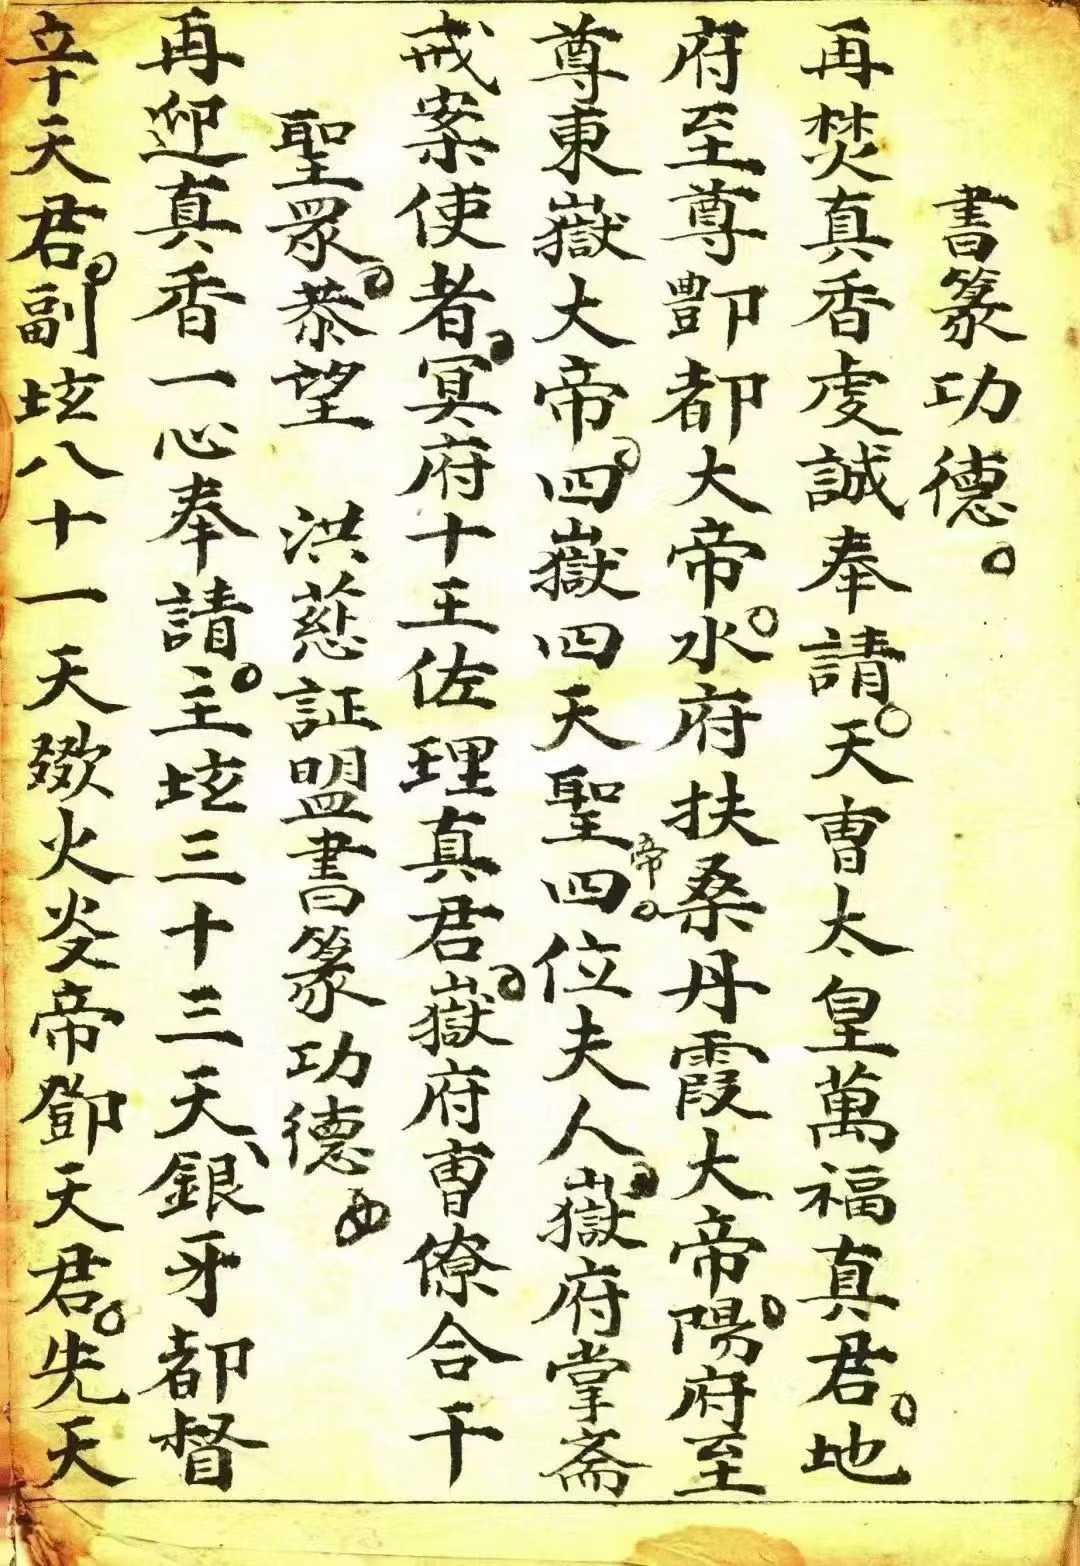 書篆功德。
再焚真香虔誠奉請。天曹太皇萬福真君。地
府至尊酆都大帝。水府扶桑丹霞大帝。陽府至
尊東嶽大帝。四嶽四天聖帝。四位夫人。嶽府掌斋
戒案使者。冥府十王佐理真君。嶽府曹僚合干
聖眾。恭望 洪慈証盟書篆功德
再迎真香一心奉請。主坛三十三天、銀牙都督
辛天君。副坛八十一天欻火炎帝鄧天君。先天